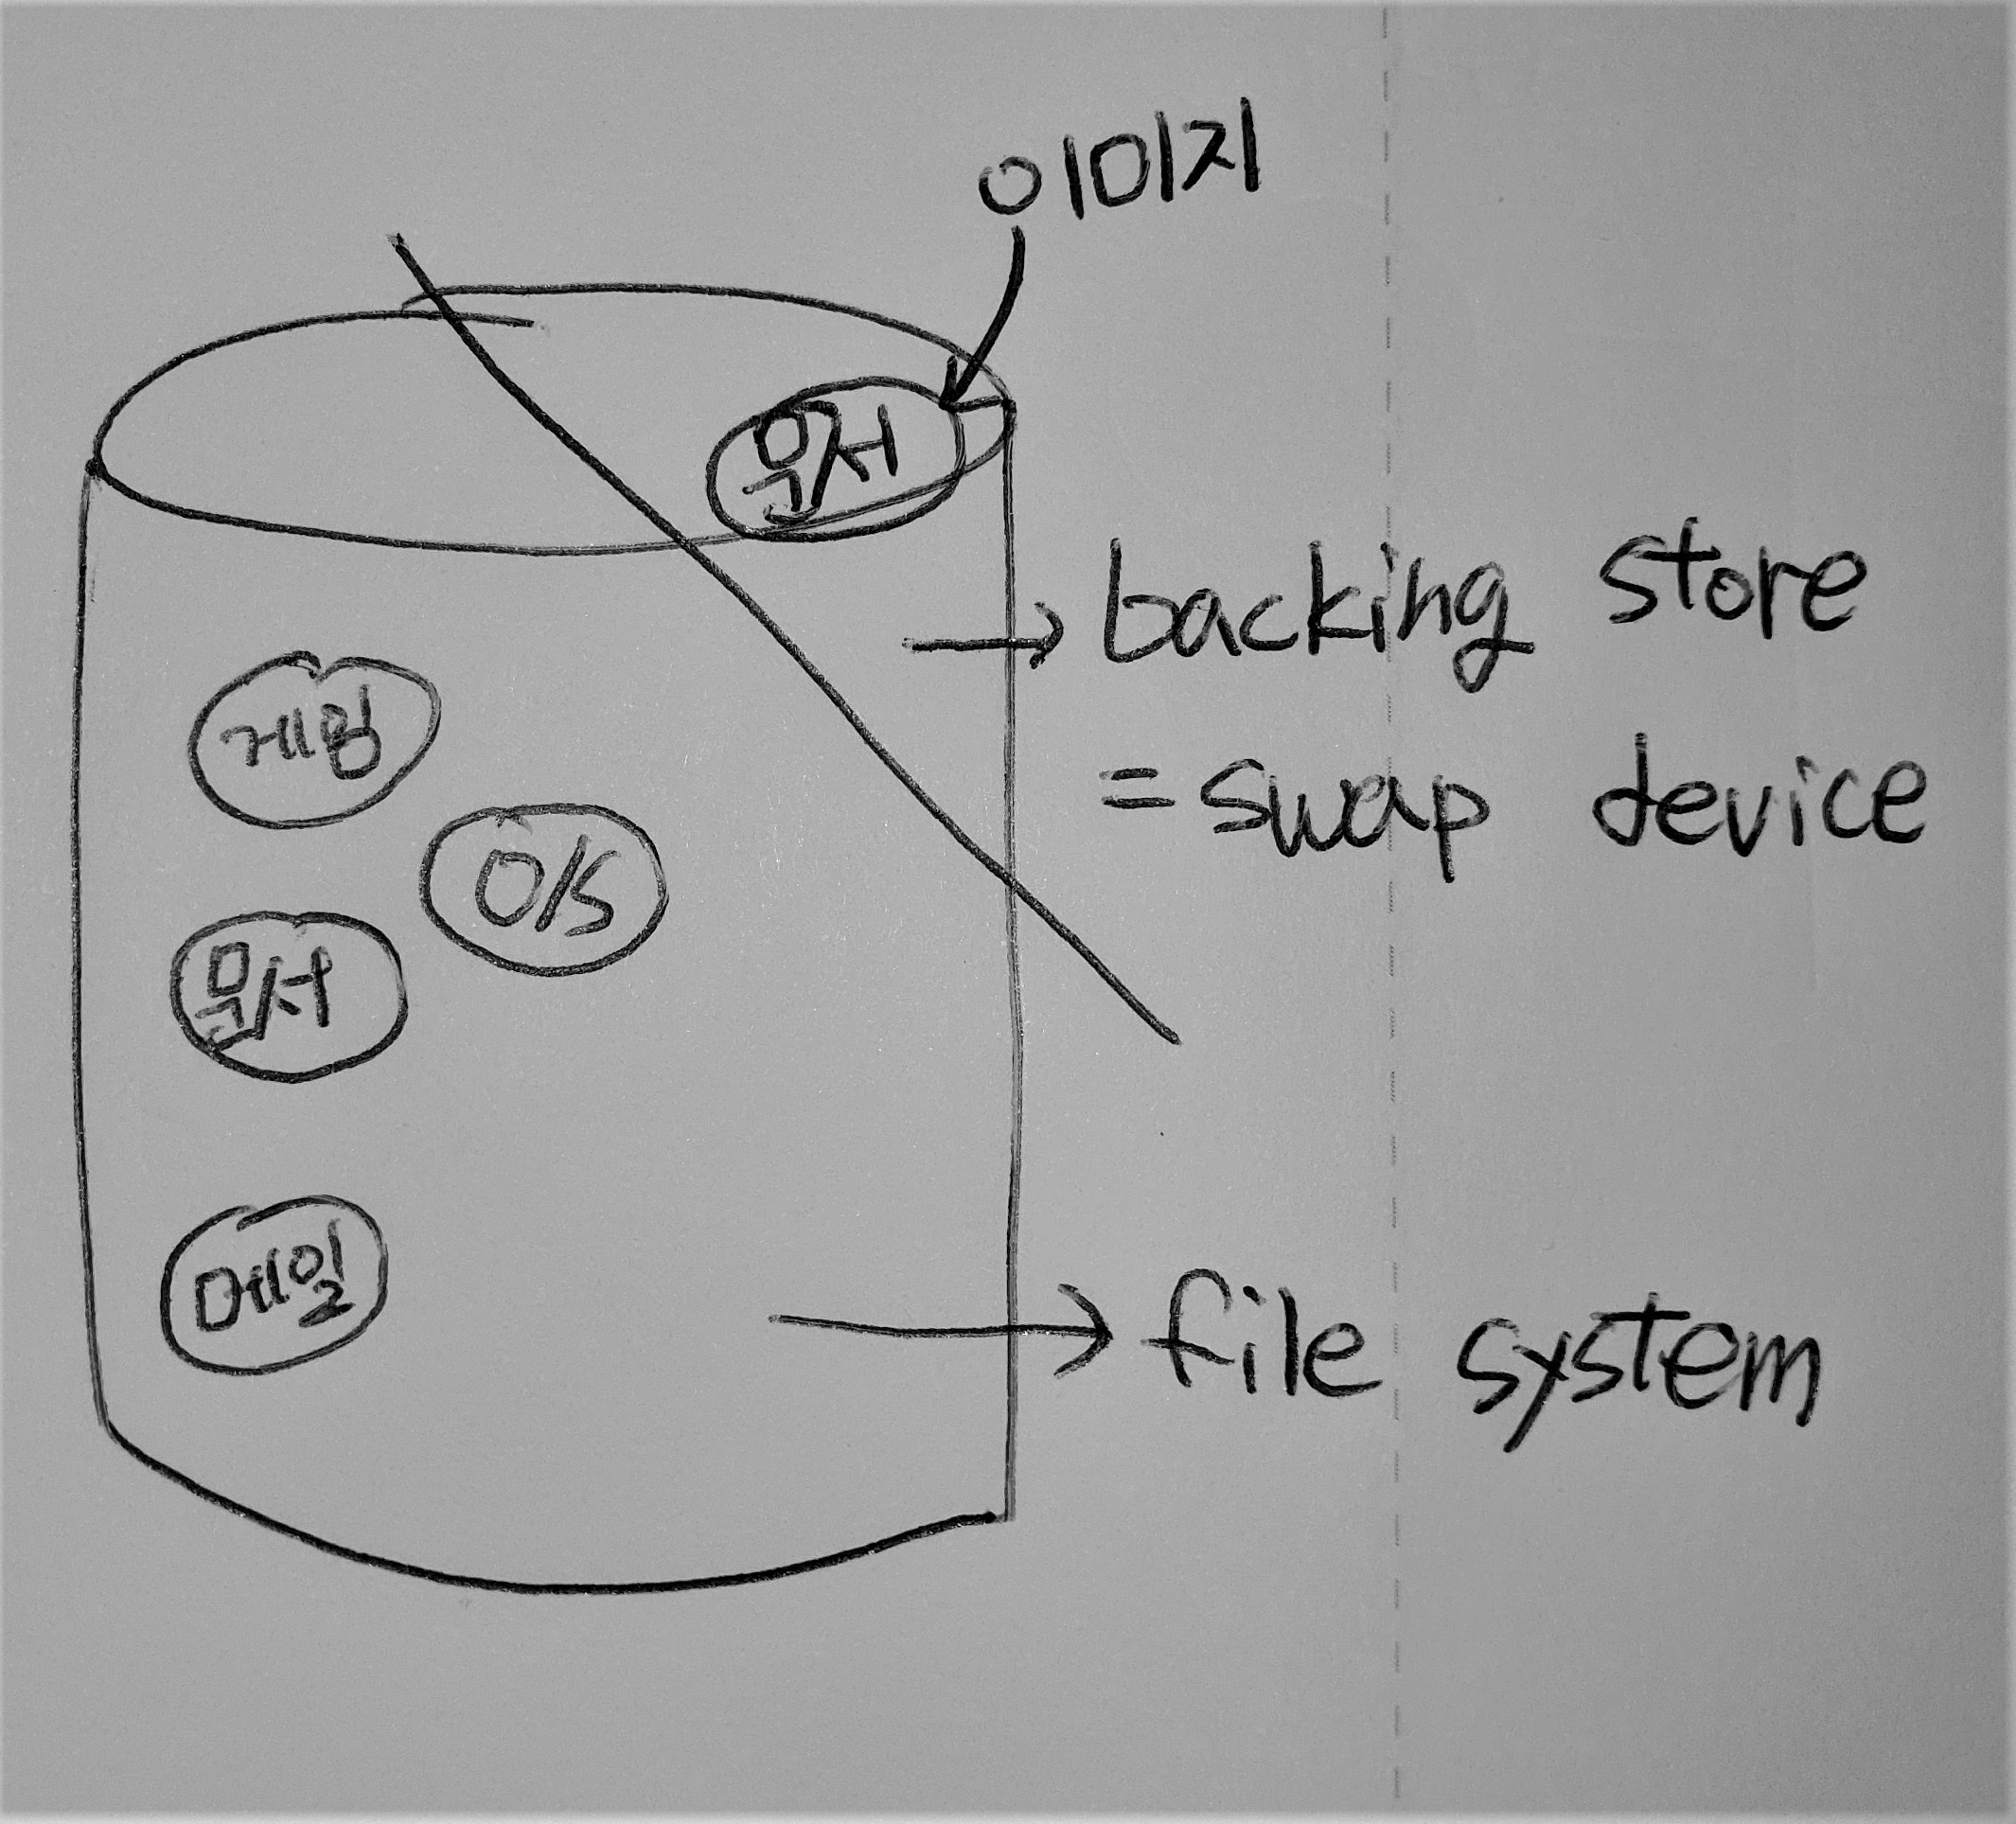 이미지
문서
backing store
= swap device
게임
O/S
문서
메일
file system